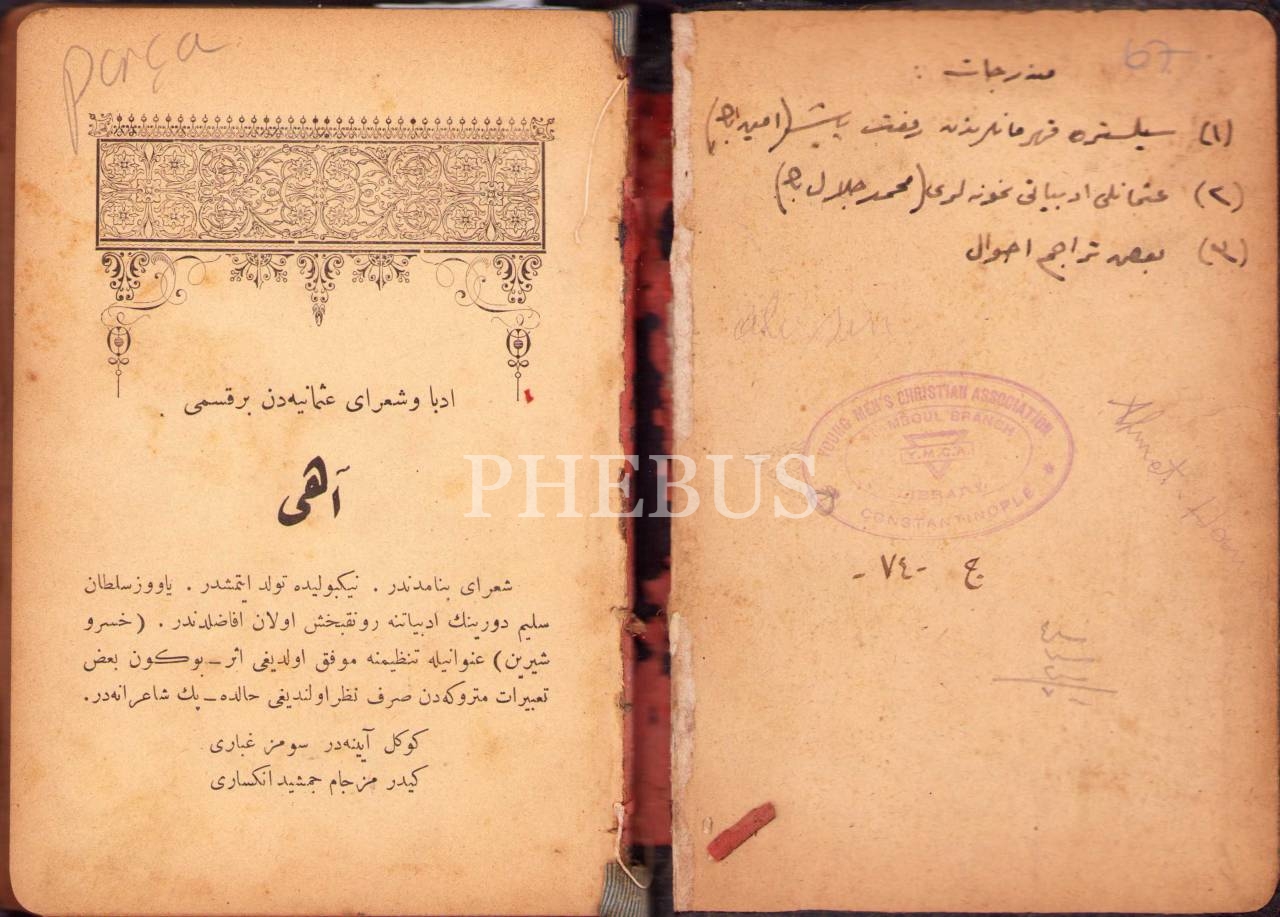 parça
ادبا وشعرای عثمانیه‌دن برقسمی .
آهی
شعرای بنامدندر . نیکبولیده تولد ایتمشدر . یاووزسلطان
سلیم دورینك ادبیاتنه رونقبخش اولان افاضلدندر . (خسرو
شیرین) عنوانیله تنظیمنه موفق اولدیغی اثر ــ بوکون بعض
تعبیرات متروکه‌دن صرف نظر اولندیغی حالده ــ پك شاعرانه‌در.
کوکل آیینه‌در سومز غباری
کیدر مزجام جمشید انکساری
67
مندرجات :
(١) سیلستره قهرمانلرندن رفعت پاشا (امین بك)
(٢) عثمانلی ادبیاتی نمونه لری (محمد جلال بك)
(٣) بعض تراجم احوال
YOUNG MEN'S CHRISTIAN ASSOCIATION
BRANCH
Y.M.C.A.
LIBRARY
CONSTANTINOPLE
Ahmet
ج ٧٤-
PHEBUS